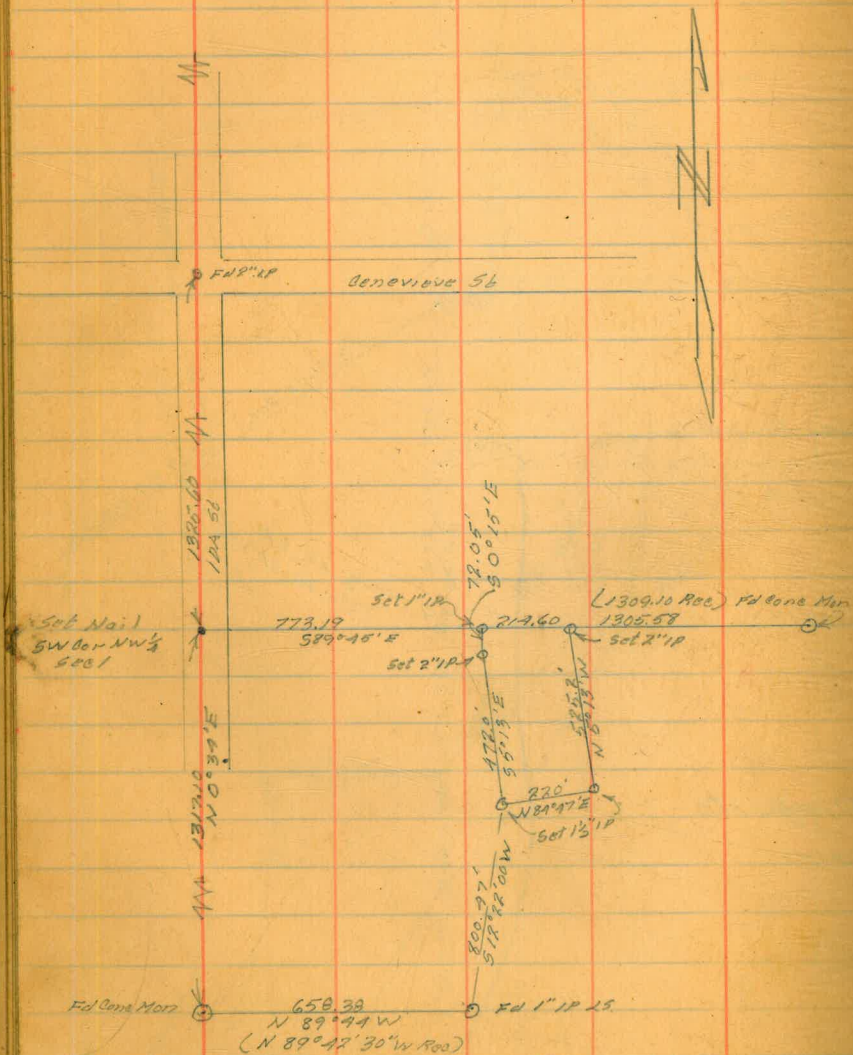 N
Fd 2" IP
Genevieve St
1325.60
IDA St
72.05'
S 0°15' E
Set 1" IP
(1309.10 Rec) Fd Conc Mon
Set Nail
SW Cor NW ¼
Sec 1
773.19
S 89°45' E
214.60
1305.58
Set 2" IP
Set 2" IP
472.0'
S 5°13' E
525.2'
N 5°13' W
220'
N 84°47' E
Set 1½" IP
1317.10
N 0°34' E
800.47'
S 12°22'00 W
Fd Conc Mon
658.38
N 89°44 W
(N 89°42'30" W Rec)
Fd 1" IP LS